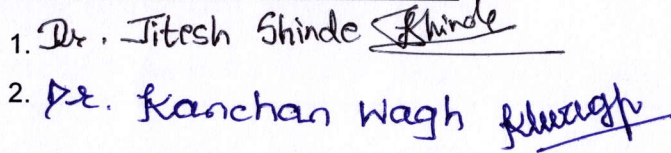 1. Dr. Jitesh Shinde Shinde
2. Dr. Kanchan Wagh